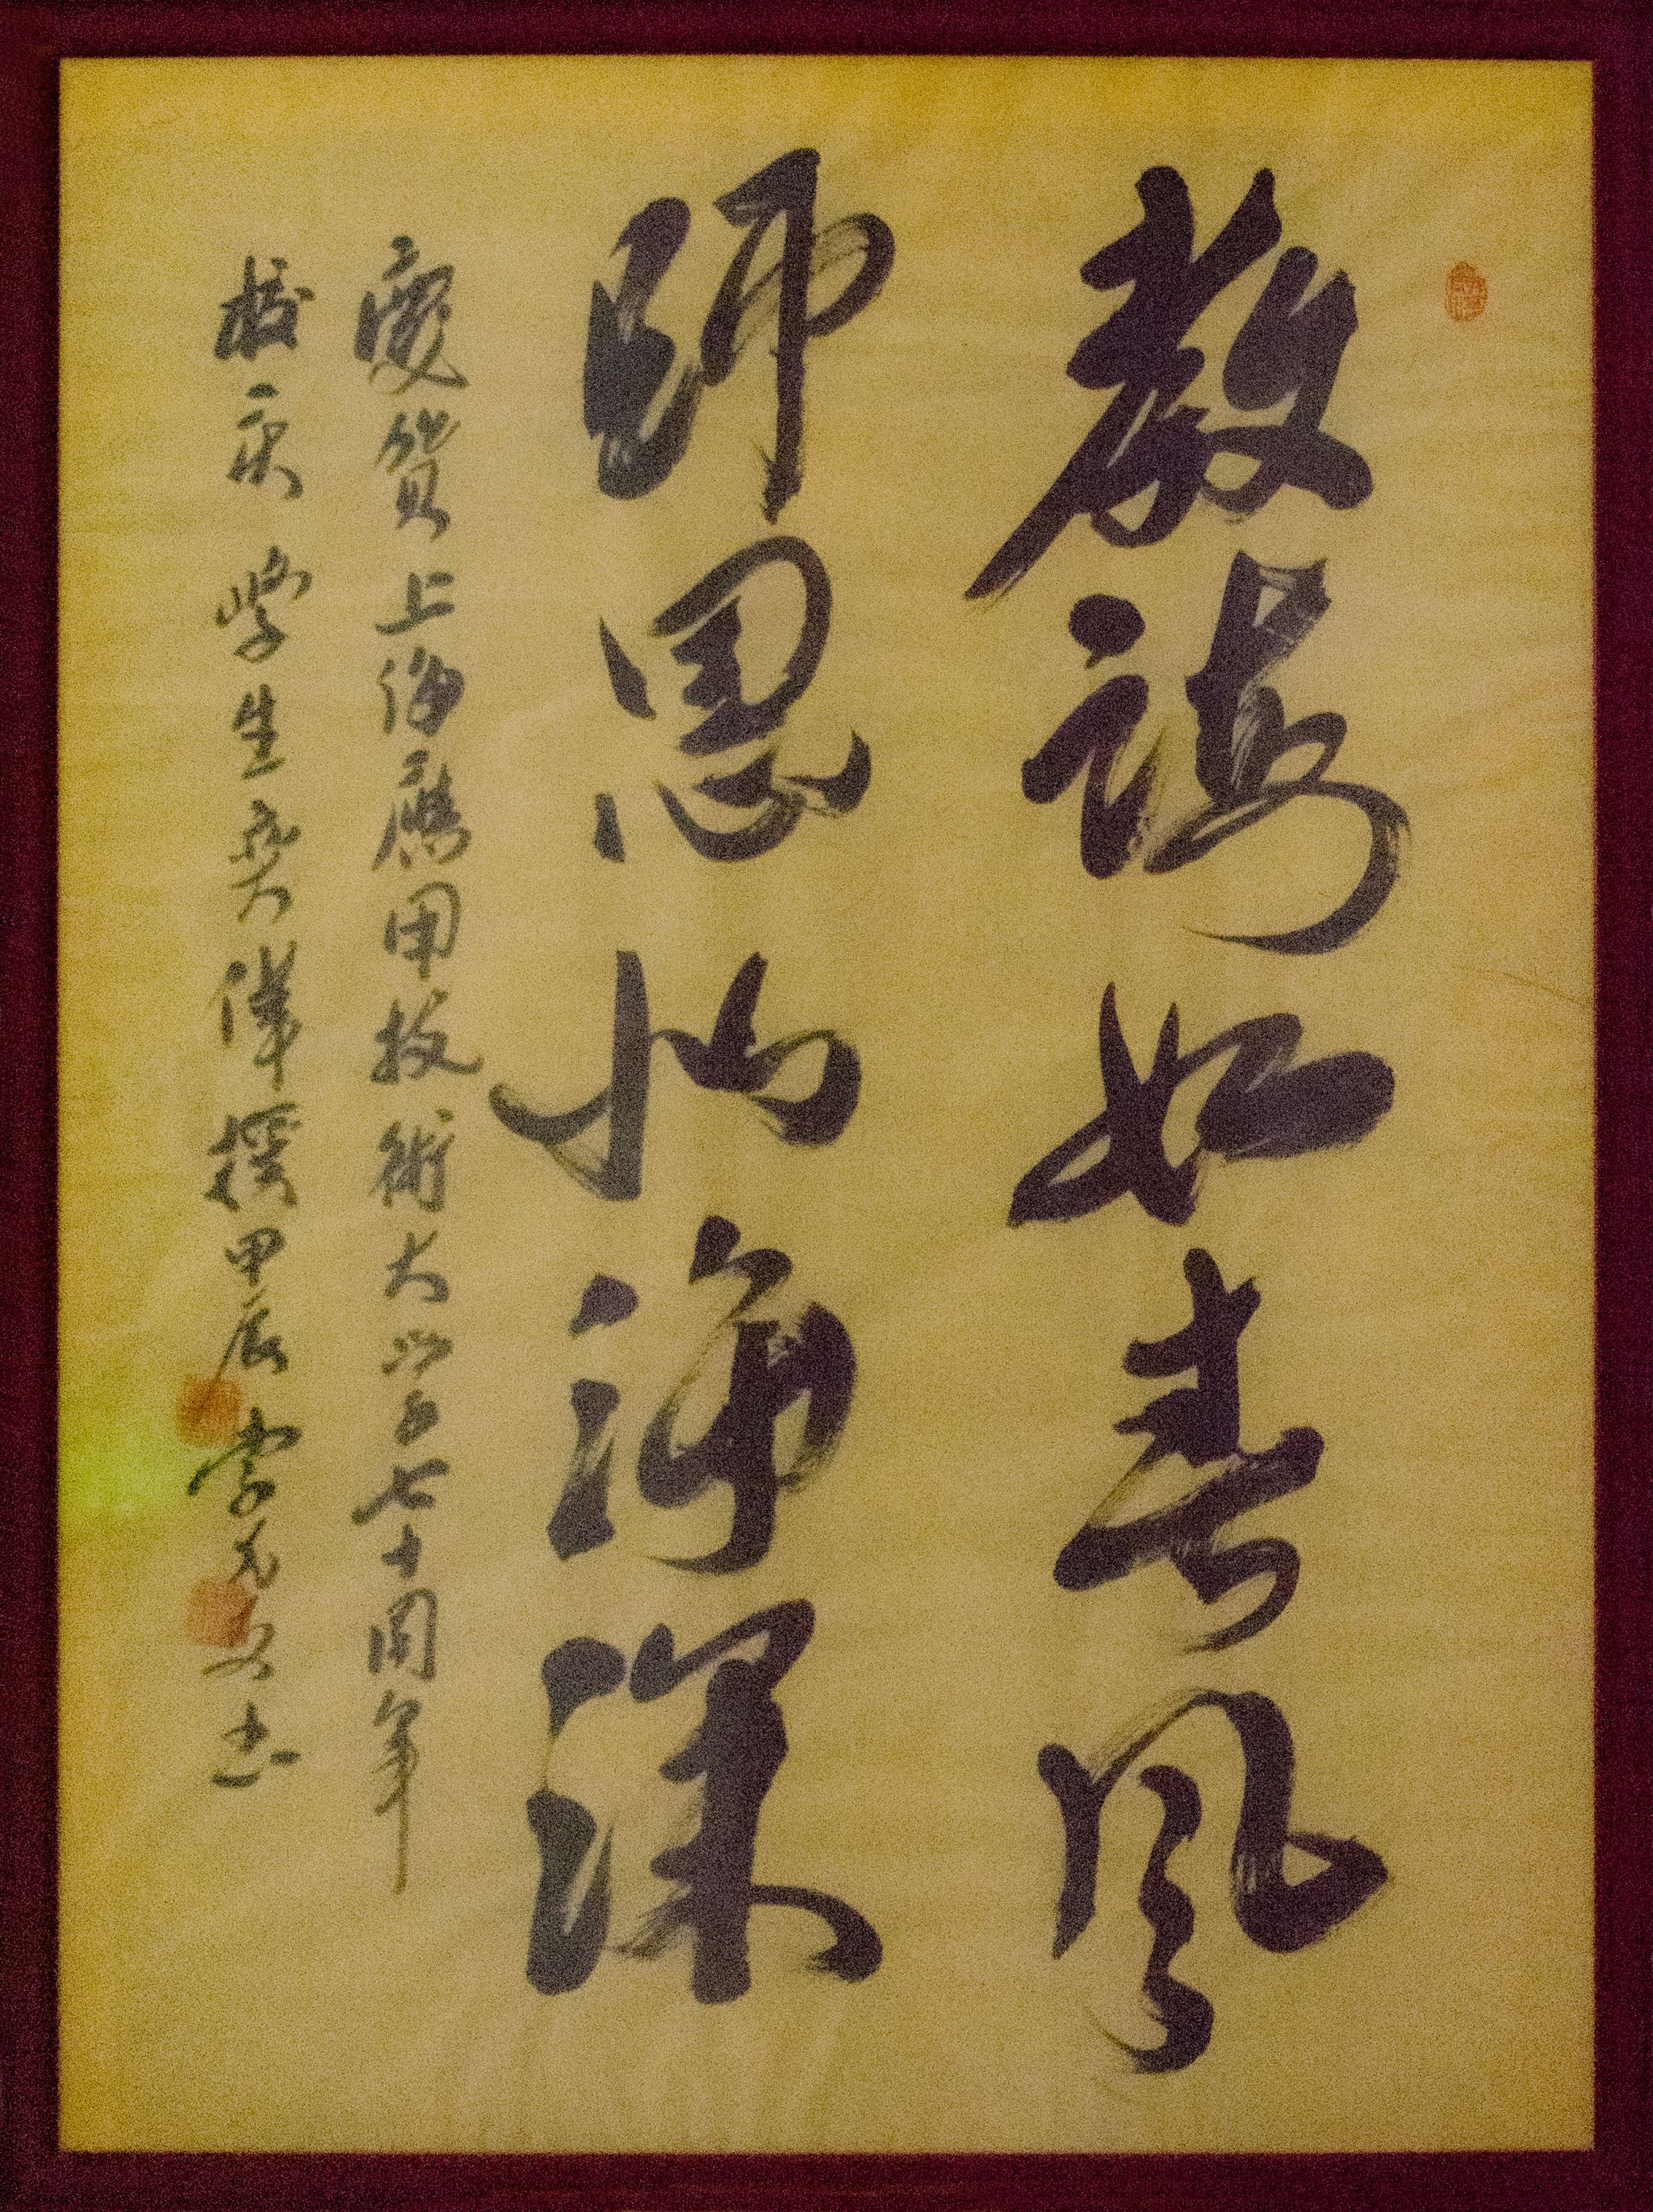 教誨如春風
師恩似海深
慶賀上海應用技術大學七十周年
校慶 學生龔偉撰甲辰李 文書